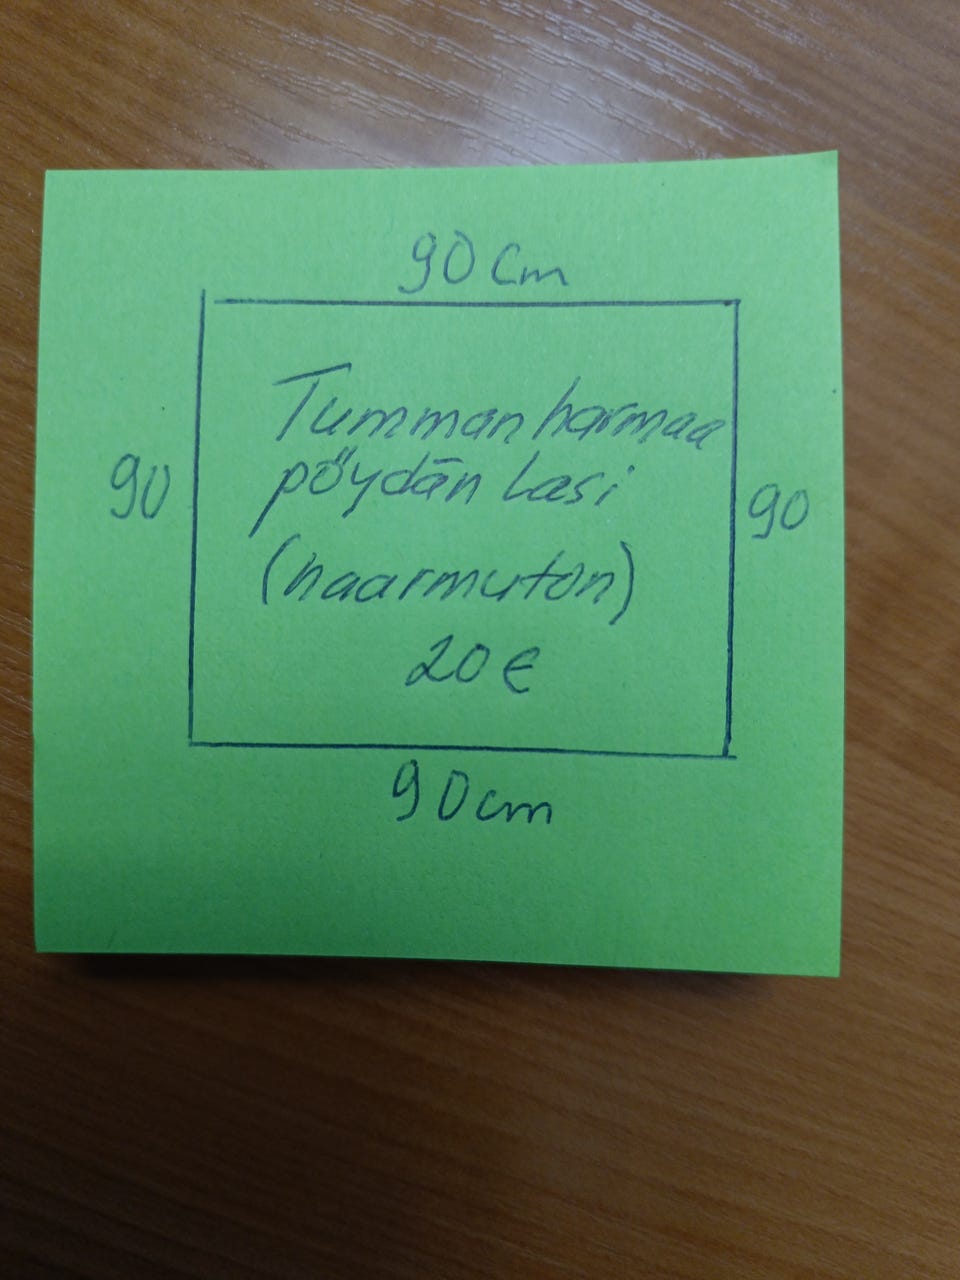 90 cm
Tumman harmaa
90
pöydän lasi
90
(naarmuton)
20 €
90 cm